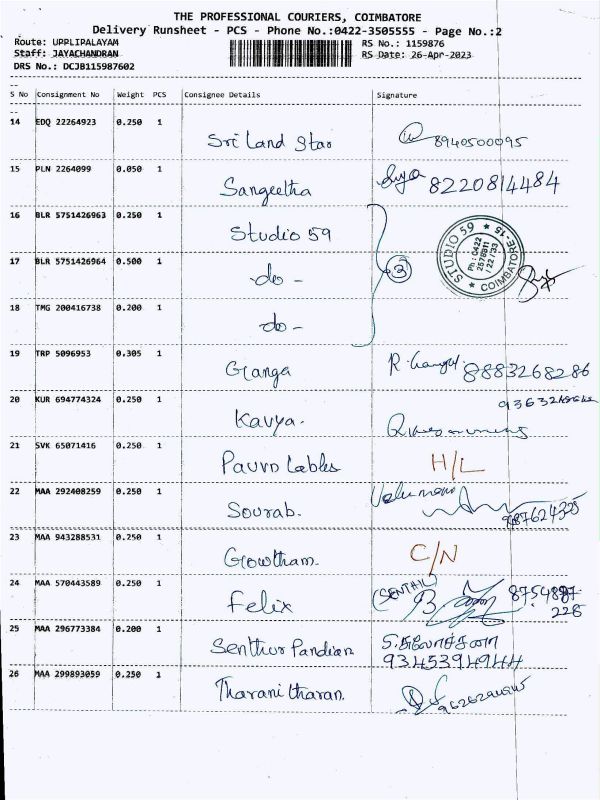 THE PROFESSIONAL COURIERS, COIMBATORE
Delivery Runsheet - PCS - Phone No.:0422-3505555 - Page No.:2
Route: UPPLIPALAYAM RS No.: 1159876
Staff: JAYACHANDRAN RS Date: 26-Apr-2023
DRS No.: DCJB115987602
S No Consignment No Weight PCS Consignee Details Signature
14 EDQ 22264923 0.250 1
Sri Land Star 8940500095
15 PLN 2264099 0.050 1
Sangeetha 8220814484
16 BLR 5751426963 0.250 1
Studio 59
STUDIO 59 COIMBATORE-15
Ph : 0422
17 BLR 5751426964 0.500 1
-do- 3
18 TMG 200416738 0.200 1
-do-
19 TRP 5096953 0.305 1
Ganga 8883268286
20 KUR 694774324 0.250 1
Kavya.
21 SVK 65071416 0.250 1
H/L
22 MAA 292408259 0.250 1
Sourab.
23 MAA 943288531 0.250 1
Gowtham. C/N
24 MAA 570443589 0.250 1
Felix
228
25 MAA 296773384 0.200 1
Senthur Pandian
9345394944
26 MAA 299893059 0.250 1
Tharani tharan.